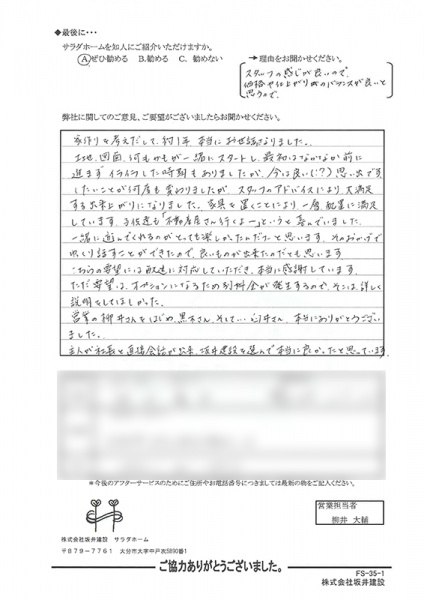 ◆最後に・・・
サラダホームを知人にご紹介いただけますか。
Ⓐぜひ勧める　B.勧める　C. 勧めない
→ 理由をお聞かせください。
スタッフの感じが良いので、
価格や仕上がりのバランスが良いと
思うので、
弊社に関してのご意見、ご要望がございましたらお聞かせください。
家作りを考えだして、約1年 本当にお世話になりました。
土地、図面、何もかもが一緒にスタートし、最初はなかなか前に
進まずイライラした時期もありましたが、今は良い(?)思い出です
したいことが何度も変わりましたが スタッフのアドバイスにより、大満足
する出来上がりになりました。家具を置くことにより一層 配置に満足
しています。子供達も「不動産屋さん行くよー」というと喜んでいました。
一緒に遊んでくれるのがとっても楽しかったんだなーと思います。そのおかげで
ゆっくり話すことができたので、良いものが出来たのだとも思います
こちらの希望には 対応していただき、本当に感謝しています。
ただ希望は、オプションになるため別料金が発生するので、そこは、詳しく
説明をしてほしかった。
営業の柳井さんをはじめ、黒木さん、そして… さん、本当にありがとうござい
ました。
主人が社長と直接会話が出来、坂井建設を選んで本当に良かったと思っています
＊今後のアフターサービスのためにご住所やお電話番号につきましては最新の物をご記入ください。
営業担当者
柳井 大輔
株式会社坂井建設　サラダホーム
〒879-7761　大分市大字中戸次5890番1
ご協力ありがとうございました。
FS-35-1
株式会社坂井建設